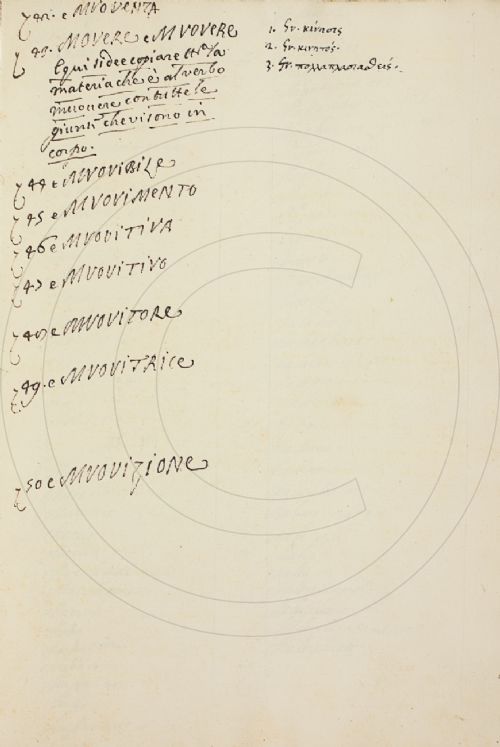 42. e MUOVENTA
43. MOVERE e MUOVERE
E qui si dee copiare tt.ª la
materia che è al verbo
muovere con tutte le
giunte che vi sono in
corpo.
44 e MUOVIBILE
45 e MUOVIMENTO
46 e MUOVITIVA
47 e MUOVITIVO
48 e MUOVITORE
49. e MUOVITRICE
50 e MUOVIZIONE
1. Gr. κίνησις
2. Gr. κινητός.
3. Gr. πολλαπλασιασθείς.